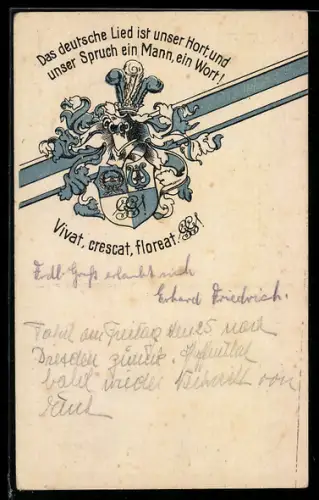 Das deutsche Lied ist unser Hort, und
unser Spruch ein Mann, ein Wort!
Vivat, crescat, floreat!
Gruß erlaubt sich
Erhard Friedrich.
Fahre am Freitag den 25 nach
Dresden zurück. Hoffentlich
bald wieder Bericht von